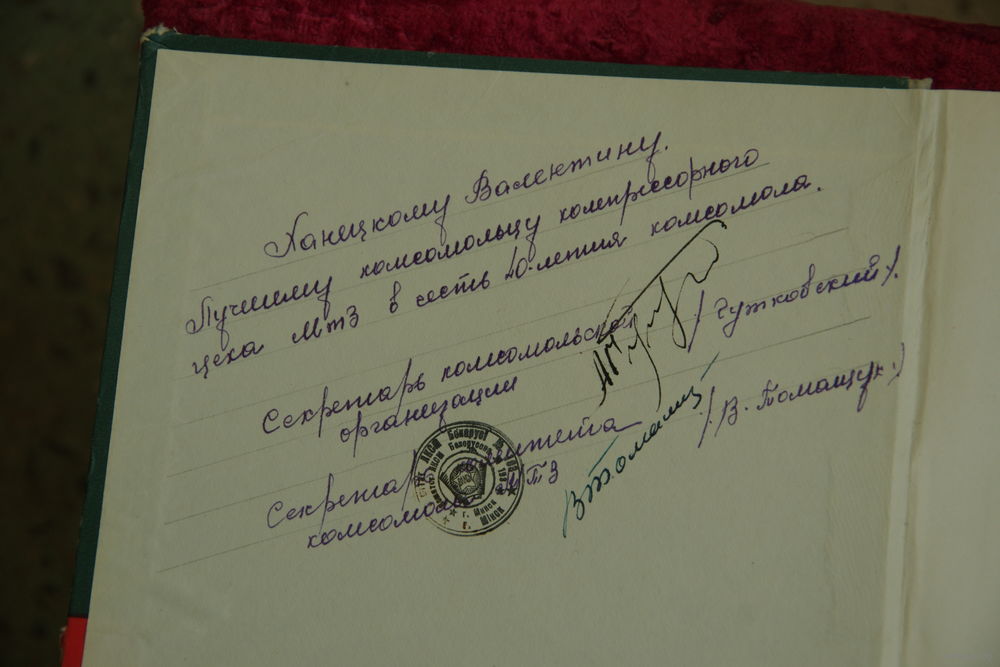 Ханецкому Валентину.
Лучшему комсомольцу компрессорного
цеха МТЗ в честь 40-летия комсомола.
Секретарь комсомольской
организации
/ Чутковский /.
Секретарь комитета
комсомола МТЗ
/ В. Томащук. /
г. Минск
г. Мінск